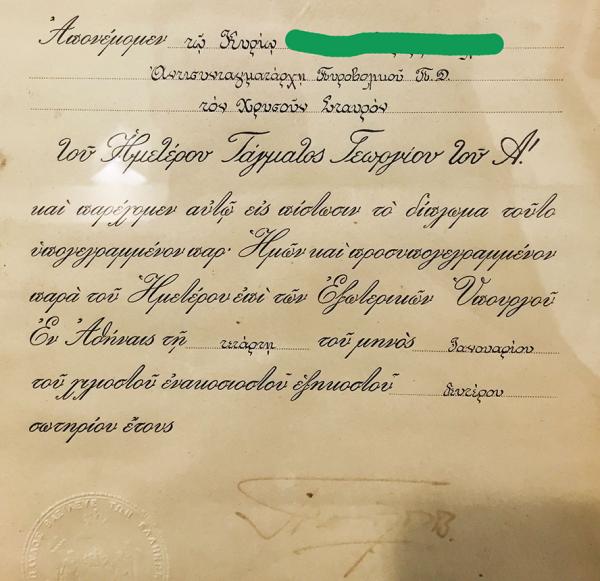 Ἀπονέμομεν τῷ Κυρίῳ
Ἀντισυνταγματάρχῃ Πυροβολικοῦ Π.Δ.
τὸν Χρυσοῦν Σταυρὸν
τοῦ Ἡμετέρου Τάγματος Γεωργίου τοῦ Α!
καὶ παρέχομεν αὐτῷ εἰς πίστωσιν τὸ δίπλωμα τοῦτο
ὑπογεγραμμένον παρ' Ἡμῶν καὶ προσυπογεγραμμένον
παρὰ τοῦ Ἡμετέρου ἐπὶ τῶν Ἐξωτερικῶν Ὑπουργοῦ
Ἐν Ἀθήναις τῇ τετάρτῃ τοῦ μηνὸς Ἰανουαρίου
τοῦ χιλιοστοῦ ἐνακοσιοστοῦ ἑξηκοστοῦ δευτέρου
σωτηρίου ἔτους
ΠΑΥΛΟΣ ΒΑΣΙΛΕΥΣ ΤΩΝ ΕΛΛΗΝΩΝ